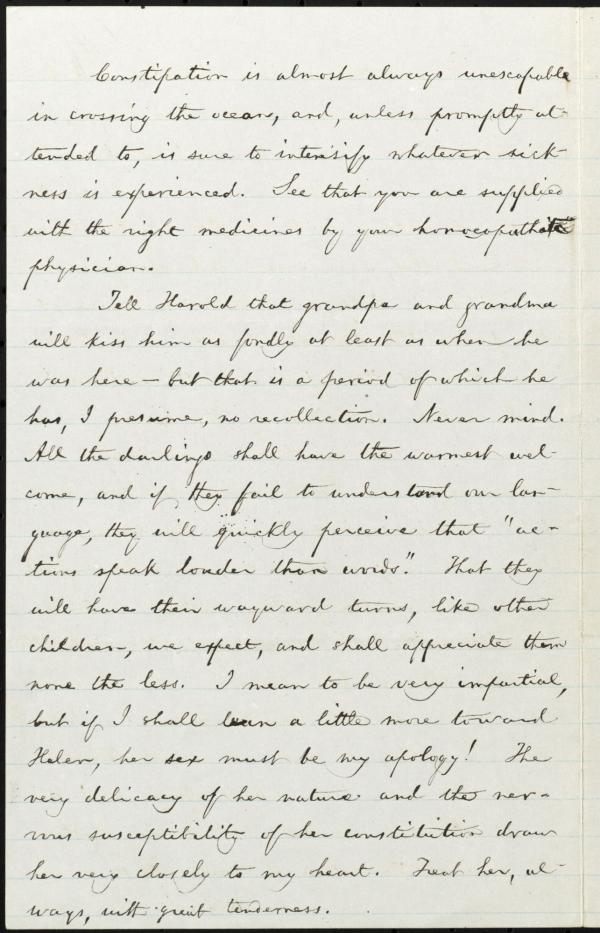 Constipation is almost always unescapable
in crossing the ocean, and, unless promptly at-
tended to, is sure to intensify whatever sick-
ness is experienced. See that you are supplied
with the right medicines by your homoeopathic
physician.
Tell Harold that grandpa and grandma
will kiss him as fondly at least as when he
was here — but that is a period of which he
has, I presume, no recollection. Never mind.
All the darlings shall have the warmest wel-
come, and if they fail to understand our lan-
guage, they will quickly perceive that "ac-
tions speak louder than words." That they
will have their wayward turns, like other
children, we expect, and shall appreciate them
none the less. I mean to be very impartial,
but if I shall lean a little more toward
Helen, her sex must be my apology! The
very delicacy of her nature and the ner-
vous susceptibility of her constitution draw
her very closely to my heart. Treat her, al-
ways, with great tenderness.